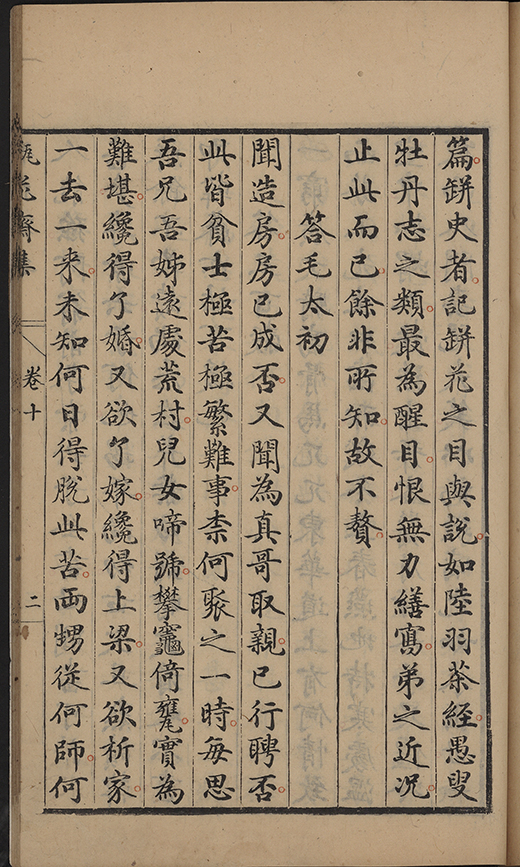 篇缾史者記缾花之目與說如陸羽茶經愚叟
牡丹志之類最為醒目恨無力繕寫弟之近況
止此而已餘非所知故不贅
答毛太初
聞造房房已成否又聞為真哥取親已行聘否
此皆貧士極苦極繁難事柰何聚之一時每思
吾兄吾姊遠處荒村兒女啼號攀竈倚甕實為
難堪纔得了婚又欲了嫁纔得上梁又欲析家
一去一来未知何日得脫此苦両甥從何師何
卷十
二